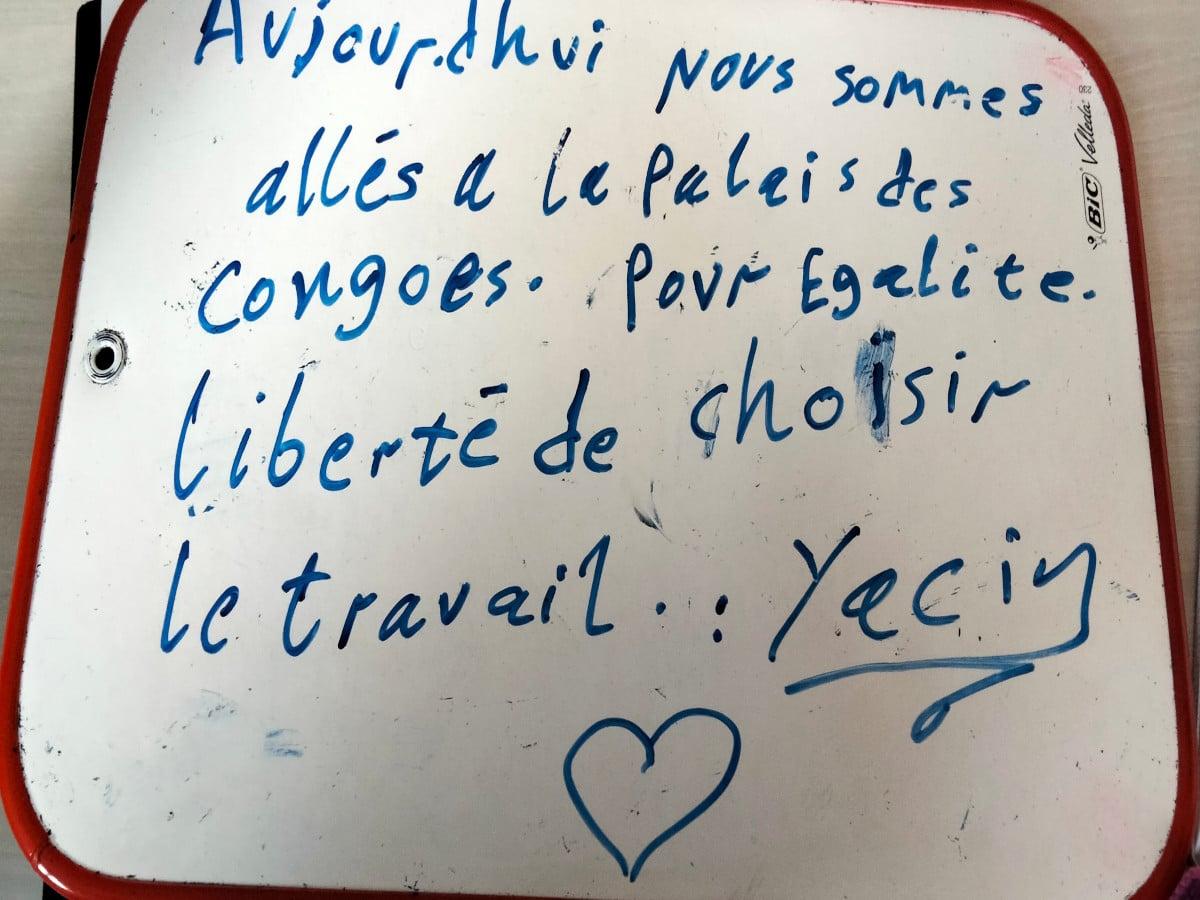 Aujour.dhui nous sommes
allés a la Palais des
congoes. pour Egalite.
liberté de choisir
le travail . : Yacin
BIC Velleda